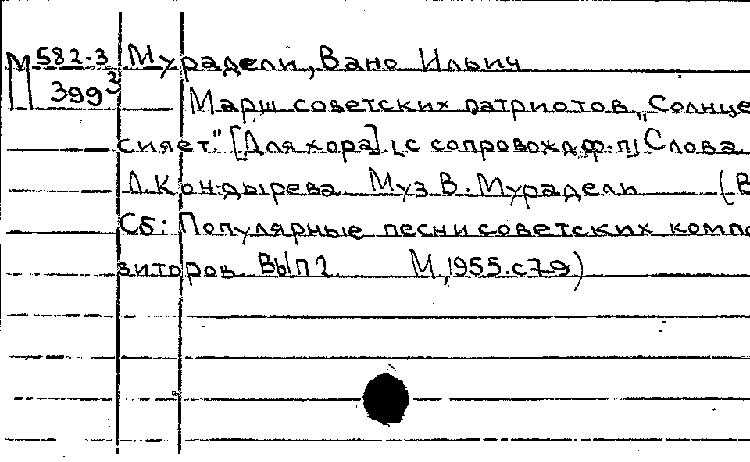 М 582-3 Мурадели, Вано Ильич
399³ Марш советских патриотов „Солнце
сияет." [Для хора]. [с сопровожд.ф.п] Слова
Л. Кондырева Муз В. Мурадели (В
Сб: Популярные песни советских компо
зиторов Вып 2 М, 1955. с 79)